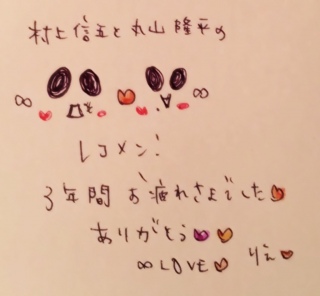 村上信五と丸山隆平の
∞ ∞
レコメン!
3年間 お疲れさまでした
ありがとう
∞LOVE りえ